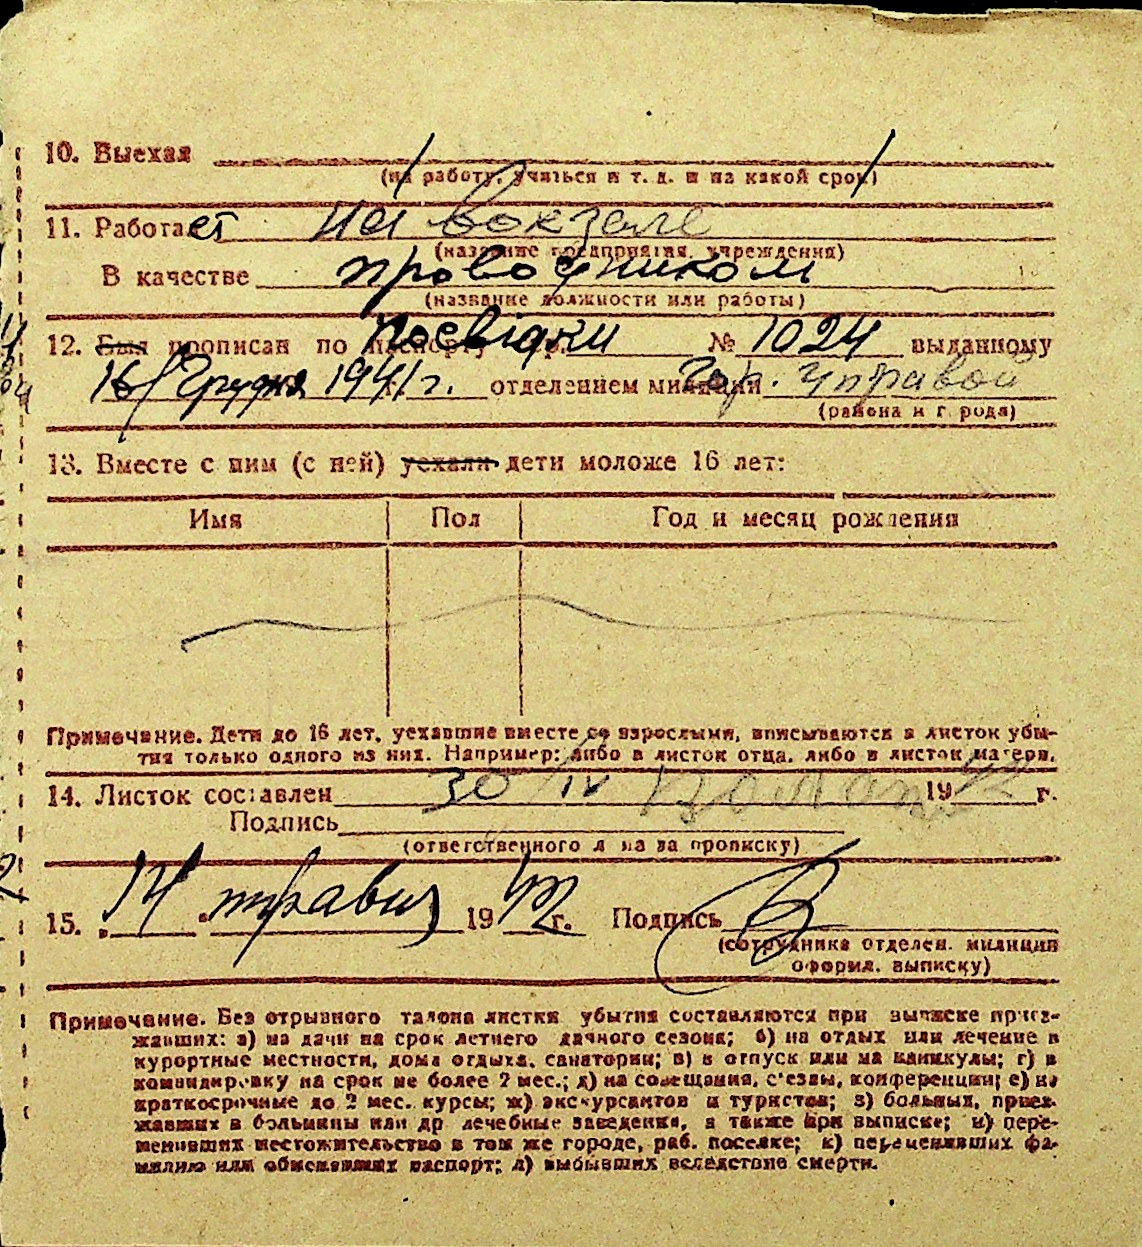 10. Выехал
(на работу, учиться и т. д. и на какой срок)
11. Работает на вокзале
(название предприятия, учреждения)
В качестве проводником
(название должности или работы)
12. Был прописан по посвідки № 1024 выданному
16/Грудня 1941 г. отделением милиции Гор. Управой
(района и города)
13. Вместе с ним (с ней) уехали дети моложе 16 лет:
Имя Пол Год и месяц рождения
Примечание. Дети до 16 лет, уехавшие вместе со взрослыми, вписываются в листок убы-
тия только одного из них. Например: либо в листок отца, либо в листок матери.
14. Листок составлен 30/IV 1942 г.
Подпись
(ответственного лица за прописку)
15. 14 травня 1942 г. Подпись
(сотрудника отделен. милиции
оформл. выписку)
Примечание. Без отрывного талона листки убытия составляются при выписке приез-
жавших: а) на дачи на срок летнего дачного сезона; б) на отдых или лечение в
курортные местности, дома отдыха, санатории; в) в отпуск или на каникулы; г) в
командировку на срок не более 2 мес.; д) на совещания, с'езды, конференции; е) на
краткосрочные до 2 мес. курсы; ж) экскурсантов и туристов; з) больных, приез-
жавших в больницы или др лечебные заведения, а также при выписке; и) пере-
менивших местожительство в том же городе, раб. поселке; к) переменивших фа-
милию или обменявших паспорт; л) выбывших вследствие смерти.